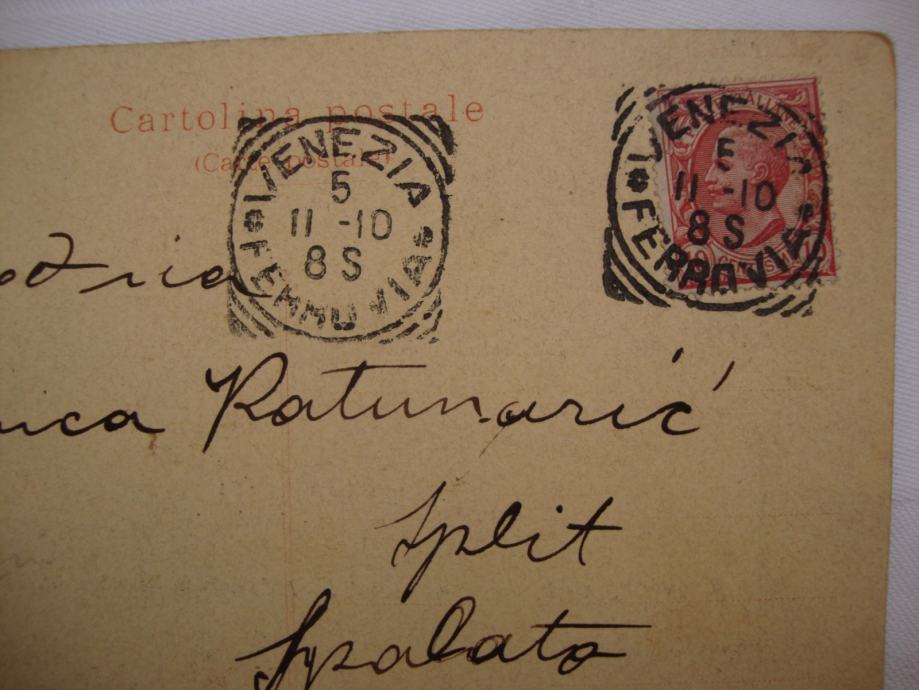 Cartolina postale
(Carte postale)
VENEZIA
5
11 -10
8 S
* FERROVIA *
VENEZIA
5
11 -10
8 S
* FERROVIA *
Ratunarić
Split
Spalato